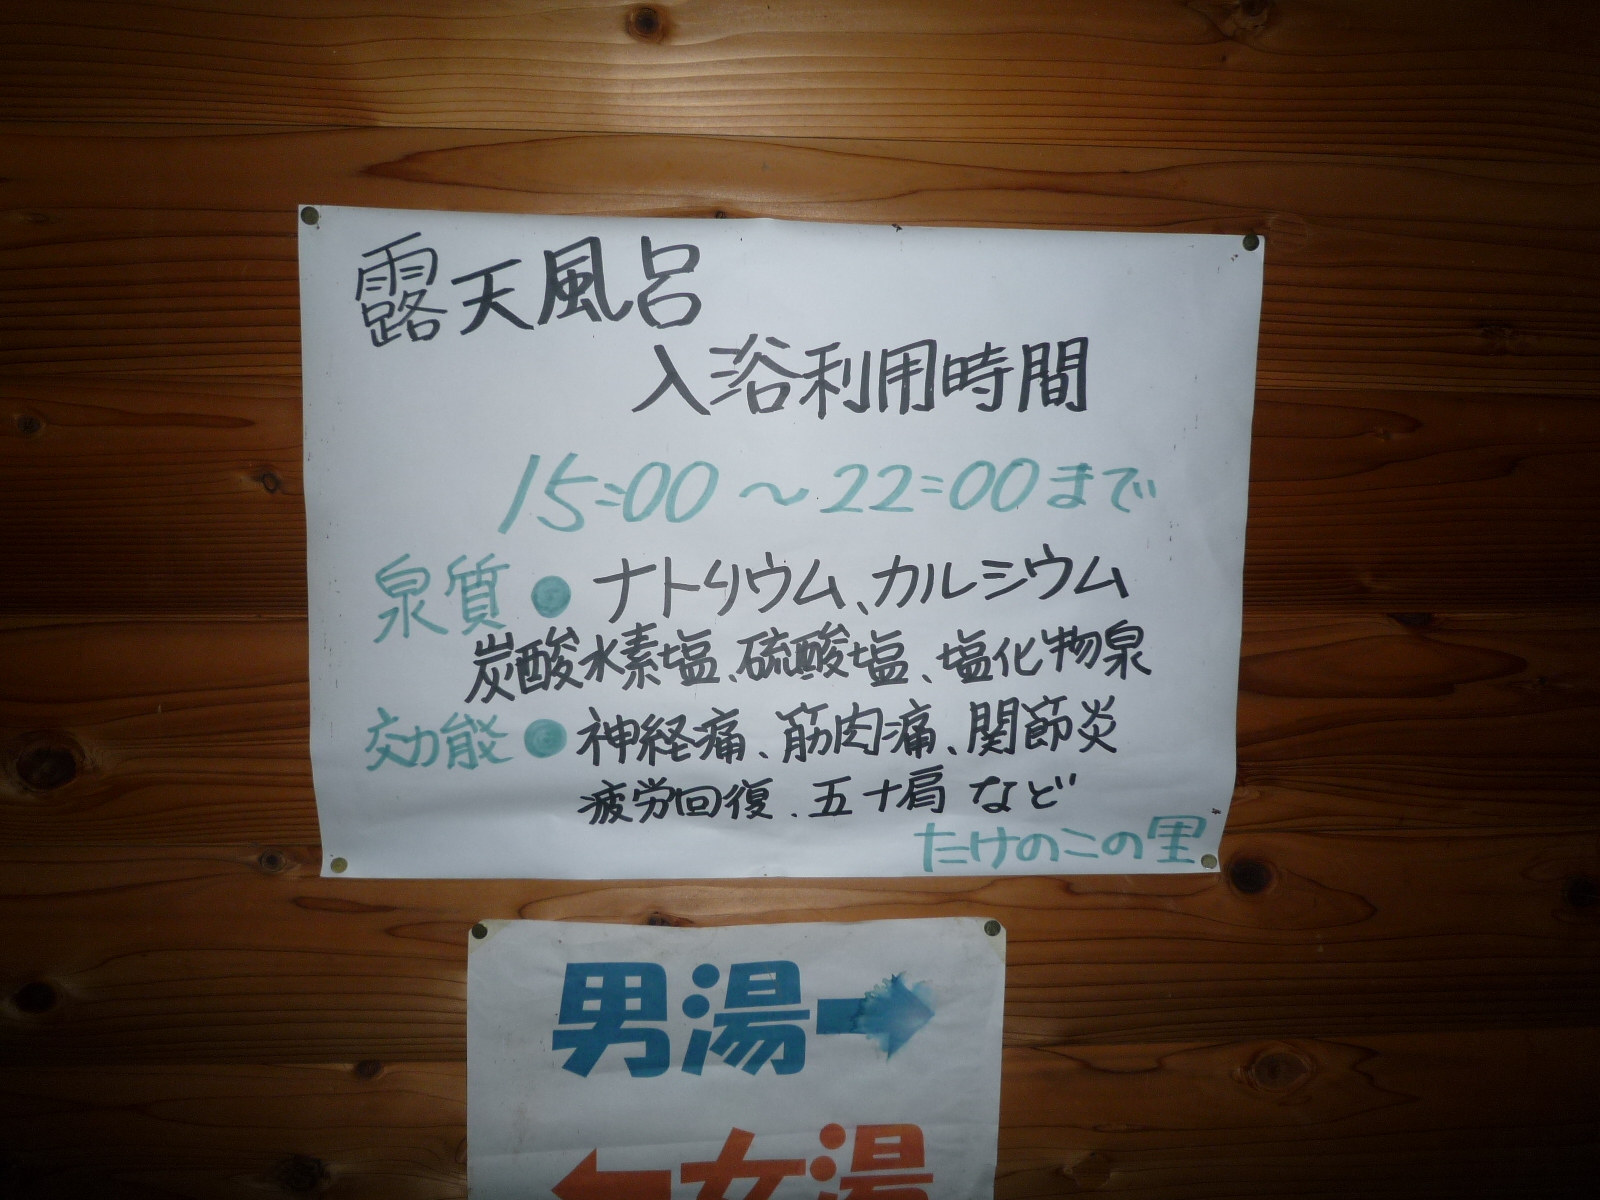 露天風呂
入浴利用時間
15:00～22:00まで
泉質●ナトリウム、カルシウム
炭酸水素塩、硫酸塩、塩化物泉
効能●神経痛、筋肉痛、関節炎
疲労回復、五十肩など
たけのこの里
男湯→
←女湯